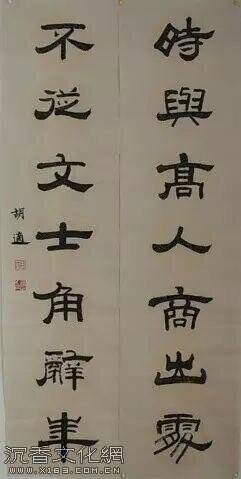 時與髙人商出處
不從文士角辭華
胡適
沉香文化網
WWW.X163.COM.CN